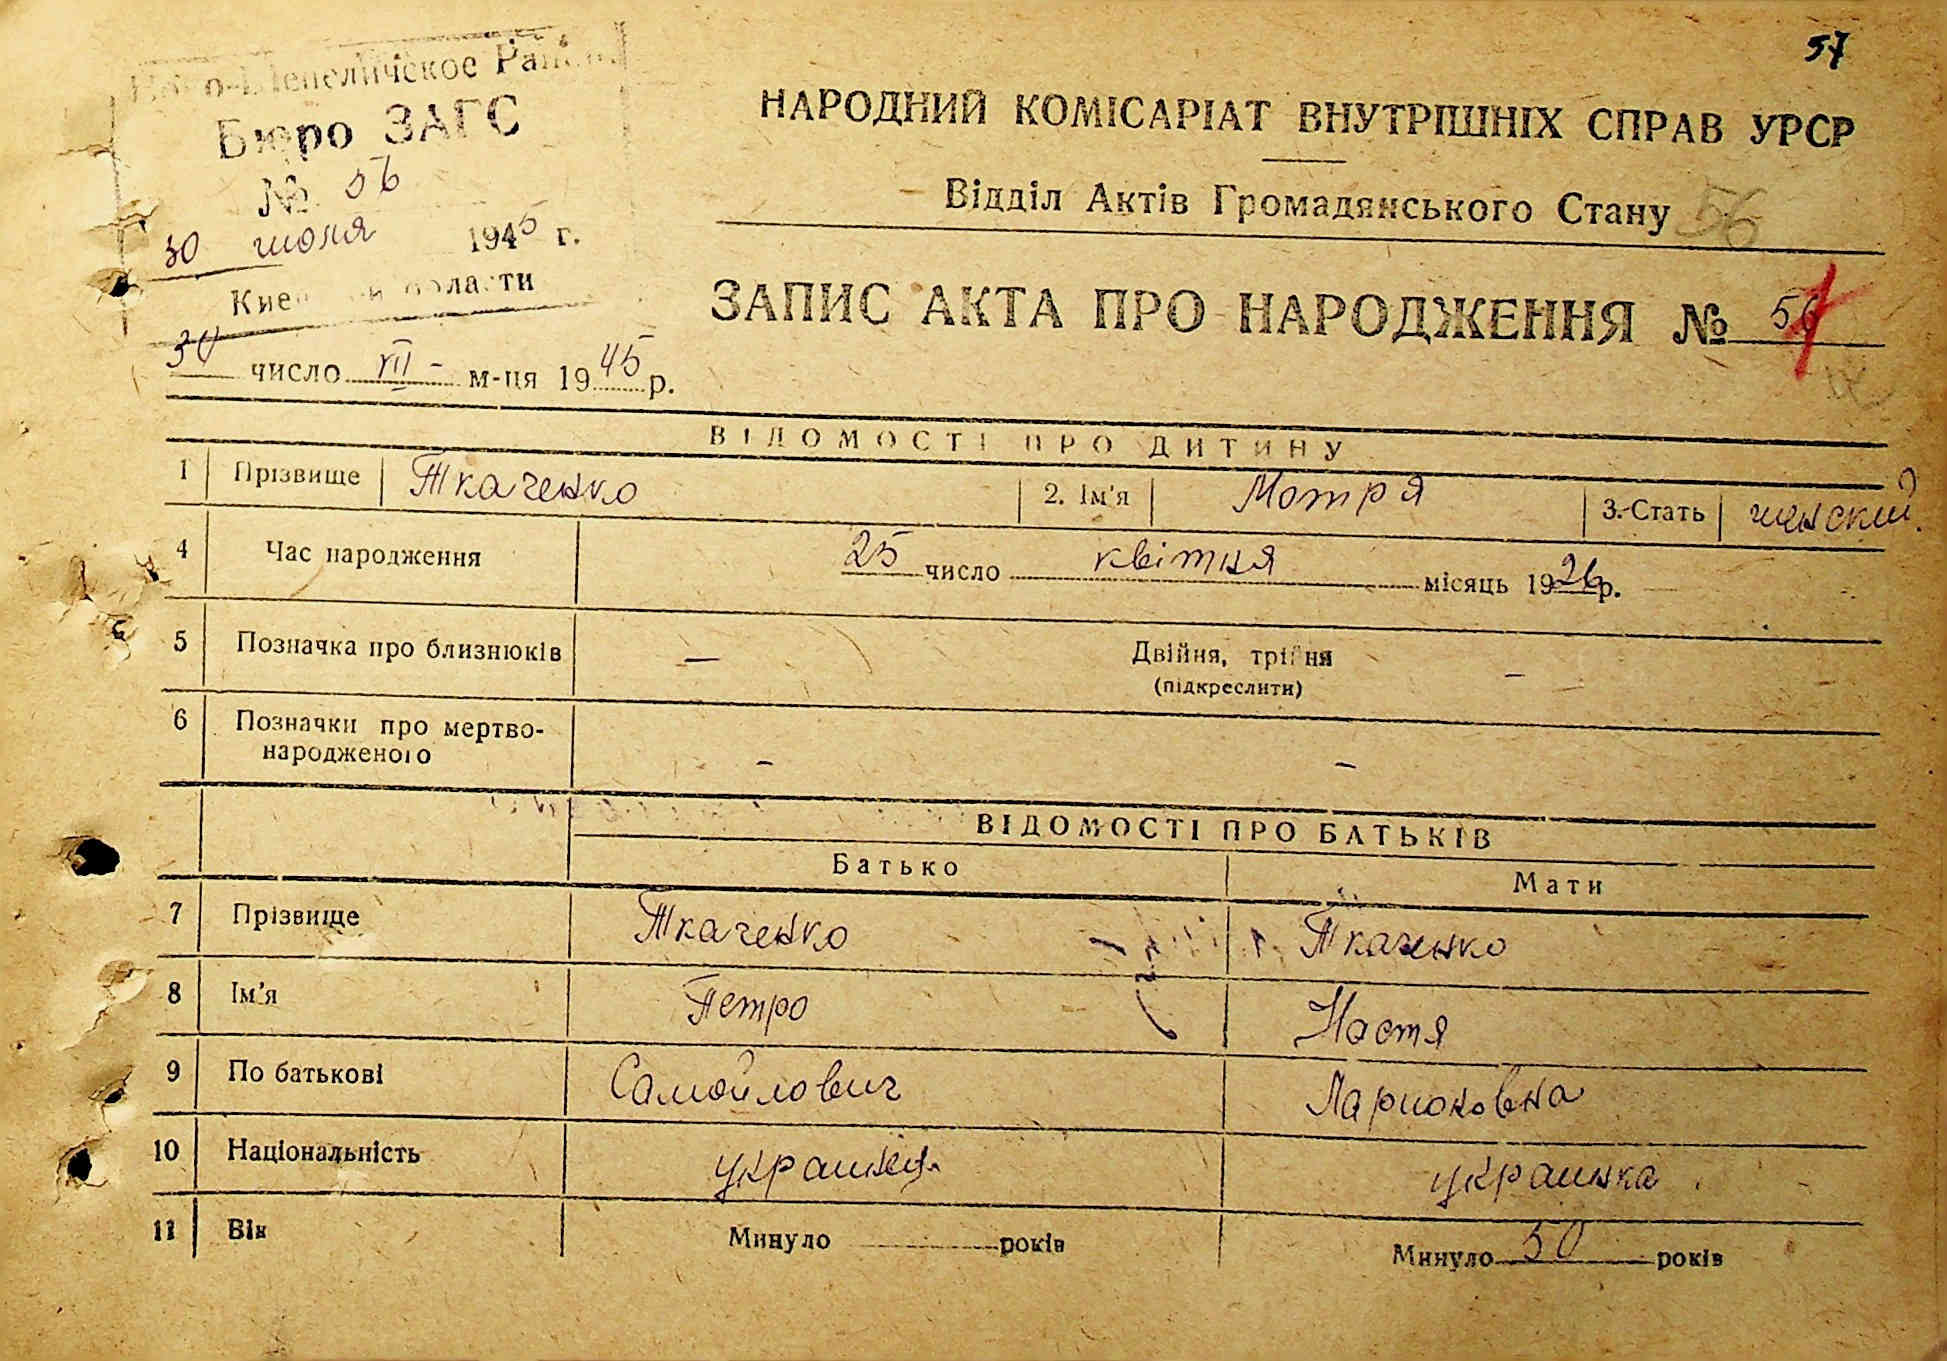 57
Ново-Шепеличское Район.
Бюро ЗАГС
№ 56
30 июля 1945 г.
Киевской области
НАРОДНИЙ КОМІСАРІАТ ВНУТРІШНІХ СПРАВ УРСР
Відділ Актів Громадянського Стану 56
ЗАПИС АКТА ПРО НАРОДЖЕННЯ № 56
30 число VII - м-ця 1945 р.
ВІДОМОСТІ ПРО ДИТИНУ
1 Прізвище Ткаченко 2. Ім'я Мотря 3. Стать женский
4 Час народження 25 число квітня місяць 1926 р.
5 Позначка про близнюків — Двійня, трійня —
(підкреслити)
6 Позначки про мертво-
народженого — —
ВІДОМОСТІ ПРО БАТЬКІВ
Батько Мати
7 Прізвище Ткаченко Ткаченко
8 Ім'я Петро Настя
9 По батькові Самойлович Ларионовна
10 Національність украинец украинка
11 Вік Минуло років Минуло 50 років